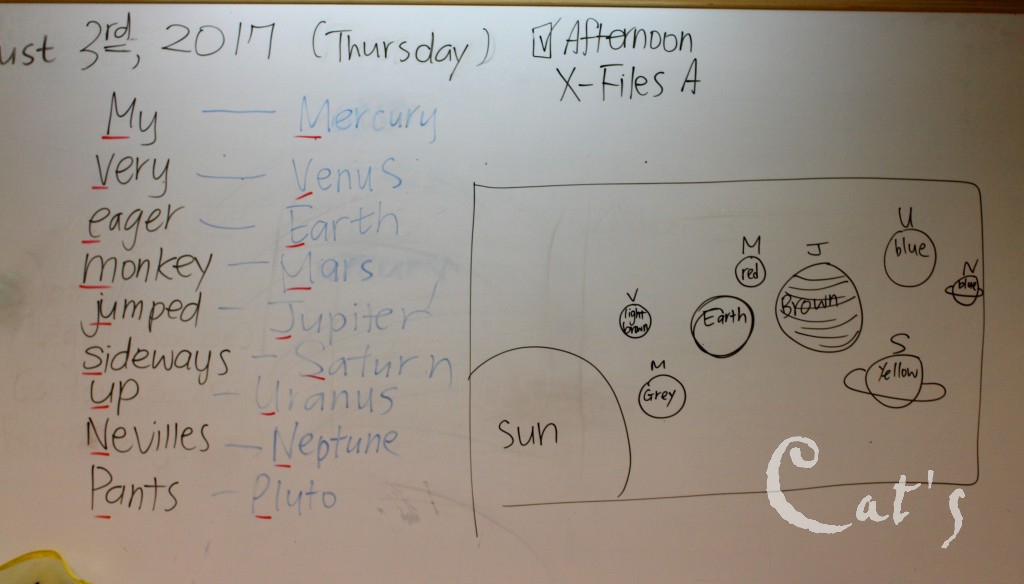 ust 3rd, 2017 (Thursday) ☑ Afternoon
X-Files A
My — Mercury
very — Venus
eager — Earth
monkey — Mars
jumped - Jupiter
sideways - Saturn
up - Uranus
Nevilles — Neptune
Pants - Pluto
U
blue
N
blue
M
red
J
Brown
V
light
brown
Earth
S
Yellow
M
Grey
sun
Cat's